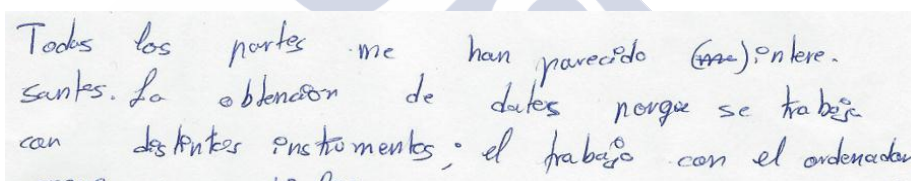 Todas los partes me han parecido (me) intere-
santes. La obtención de datos porque se trabaja
con distintos instrumentos; el trabajo con el ordenador